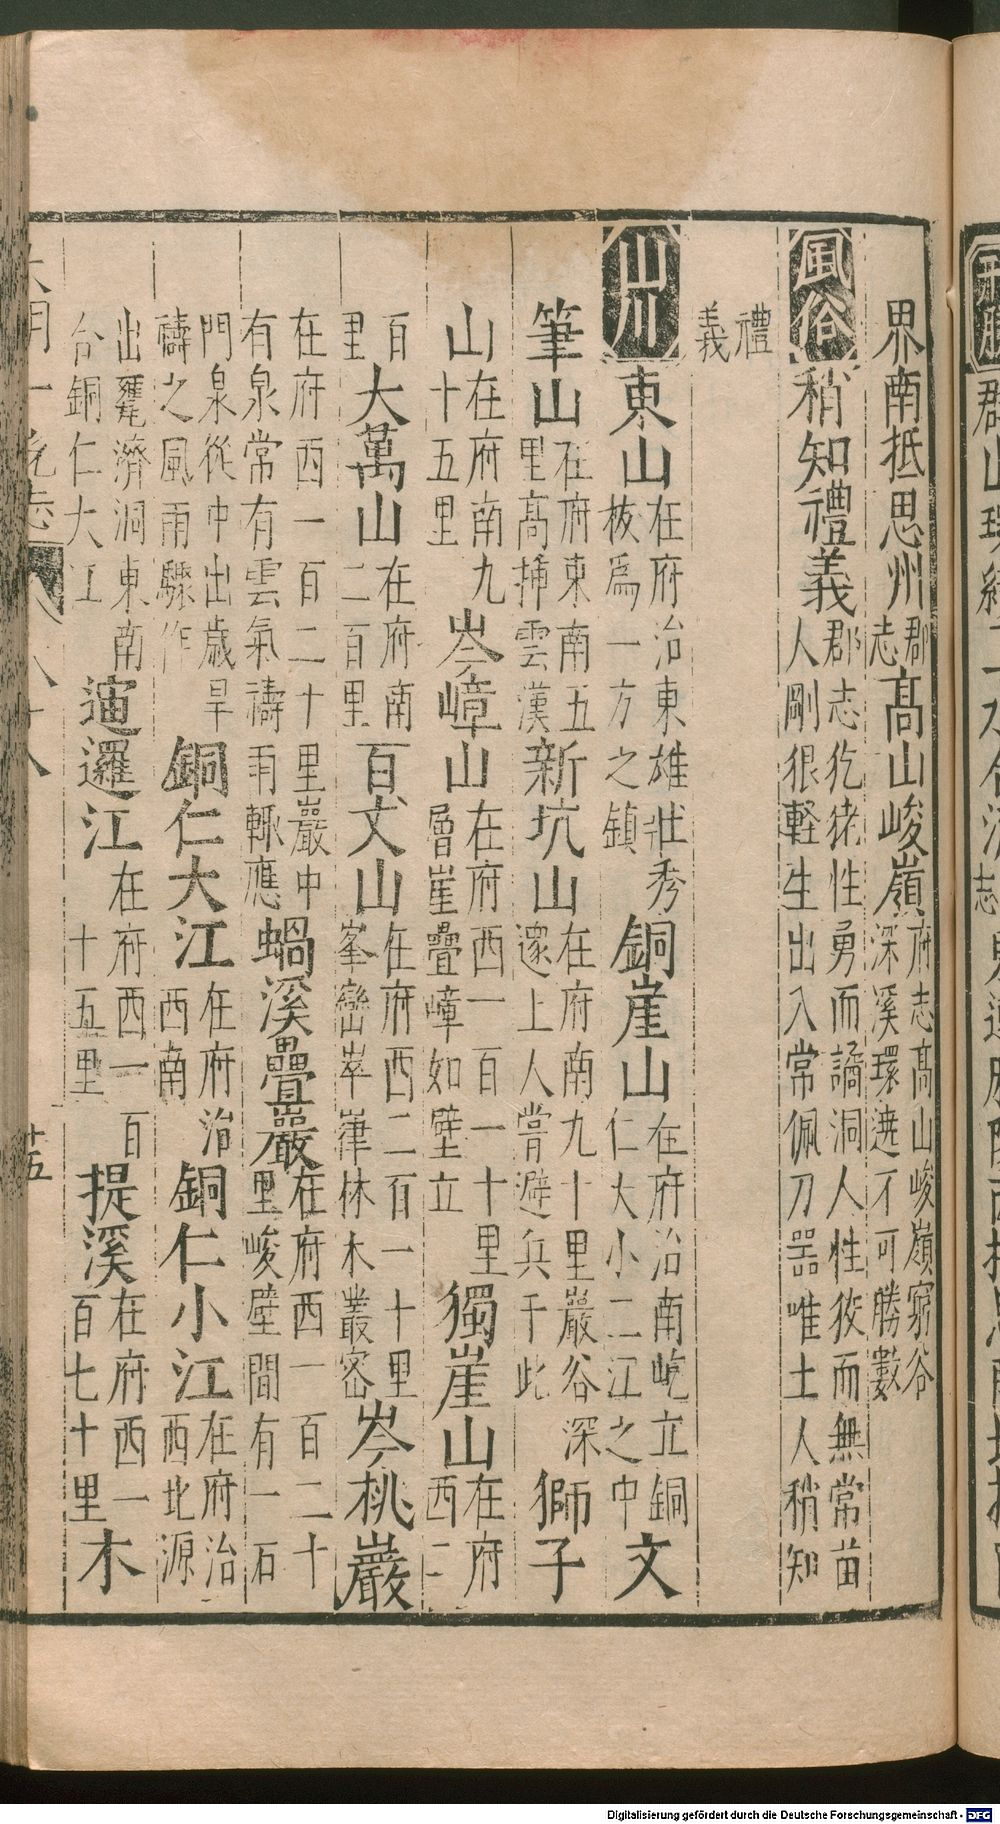 界南抵思州郡志高山峻嶺府志高山峻嶺窮谷深溪環遶不可勝數
風俗稍知禮義郡志犵狫性勇而譎洞人性狡而無常苗人剛狠輕生出入常佩刀器唯土人稍知
禮義
山川東山在府治東雄壯秀㧞爲一方之鎮銅崖山在府治南屹立銅仁大小二江之中文
筆山在府東南五里高揷雲漢新坑山在府南九十里巖谷深邃上人嘗避兵于此獅子
山在府南九十五里岑嶂山在府西一百一十里層崖疊嶂如壁立獨崖山在府西二
百里大萬山在府南二百里百丈山在府西二百一十里峯巒崒嵂林木叢密岑桃巖
在府西一百二十里巖中有泉常有雲氣禱雨輒應蝸溪疊巖在府西一百二十里峻壁間有一石
門泉從中出歲旱禱之風雨驟作銅仁大江在府治西南銅仁小江在府治西北源
出甕濟洞東南合銅仁大江逥邏江在府西一百十五里提溪在府西一百七十里木
大明一統志 八十八
十五
郡山
二水合流
志
Digitalisierung gefördert durch die Deutsche Forschungsgemeinschaft - DFG